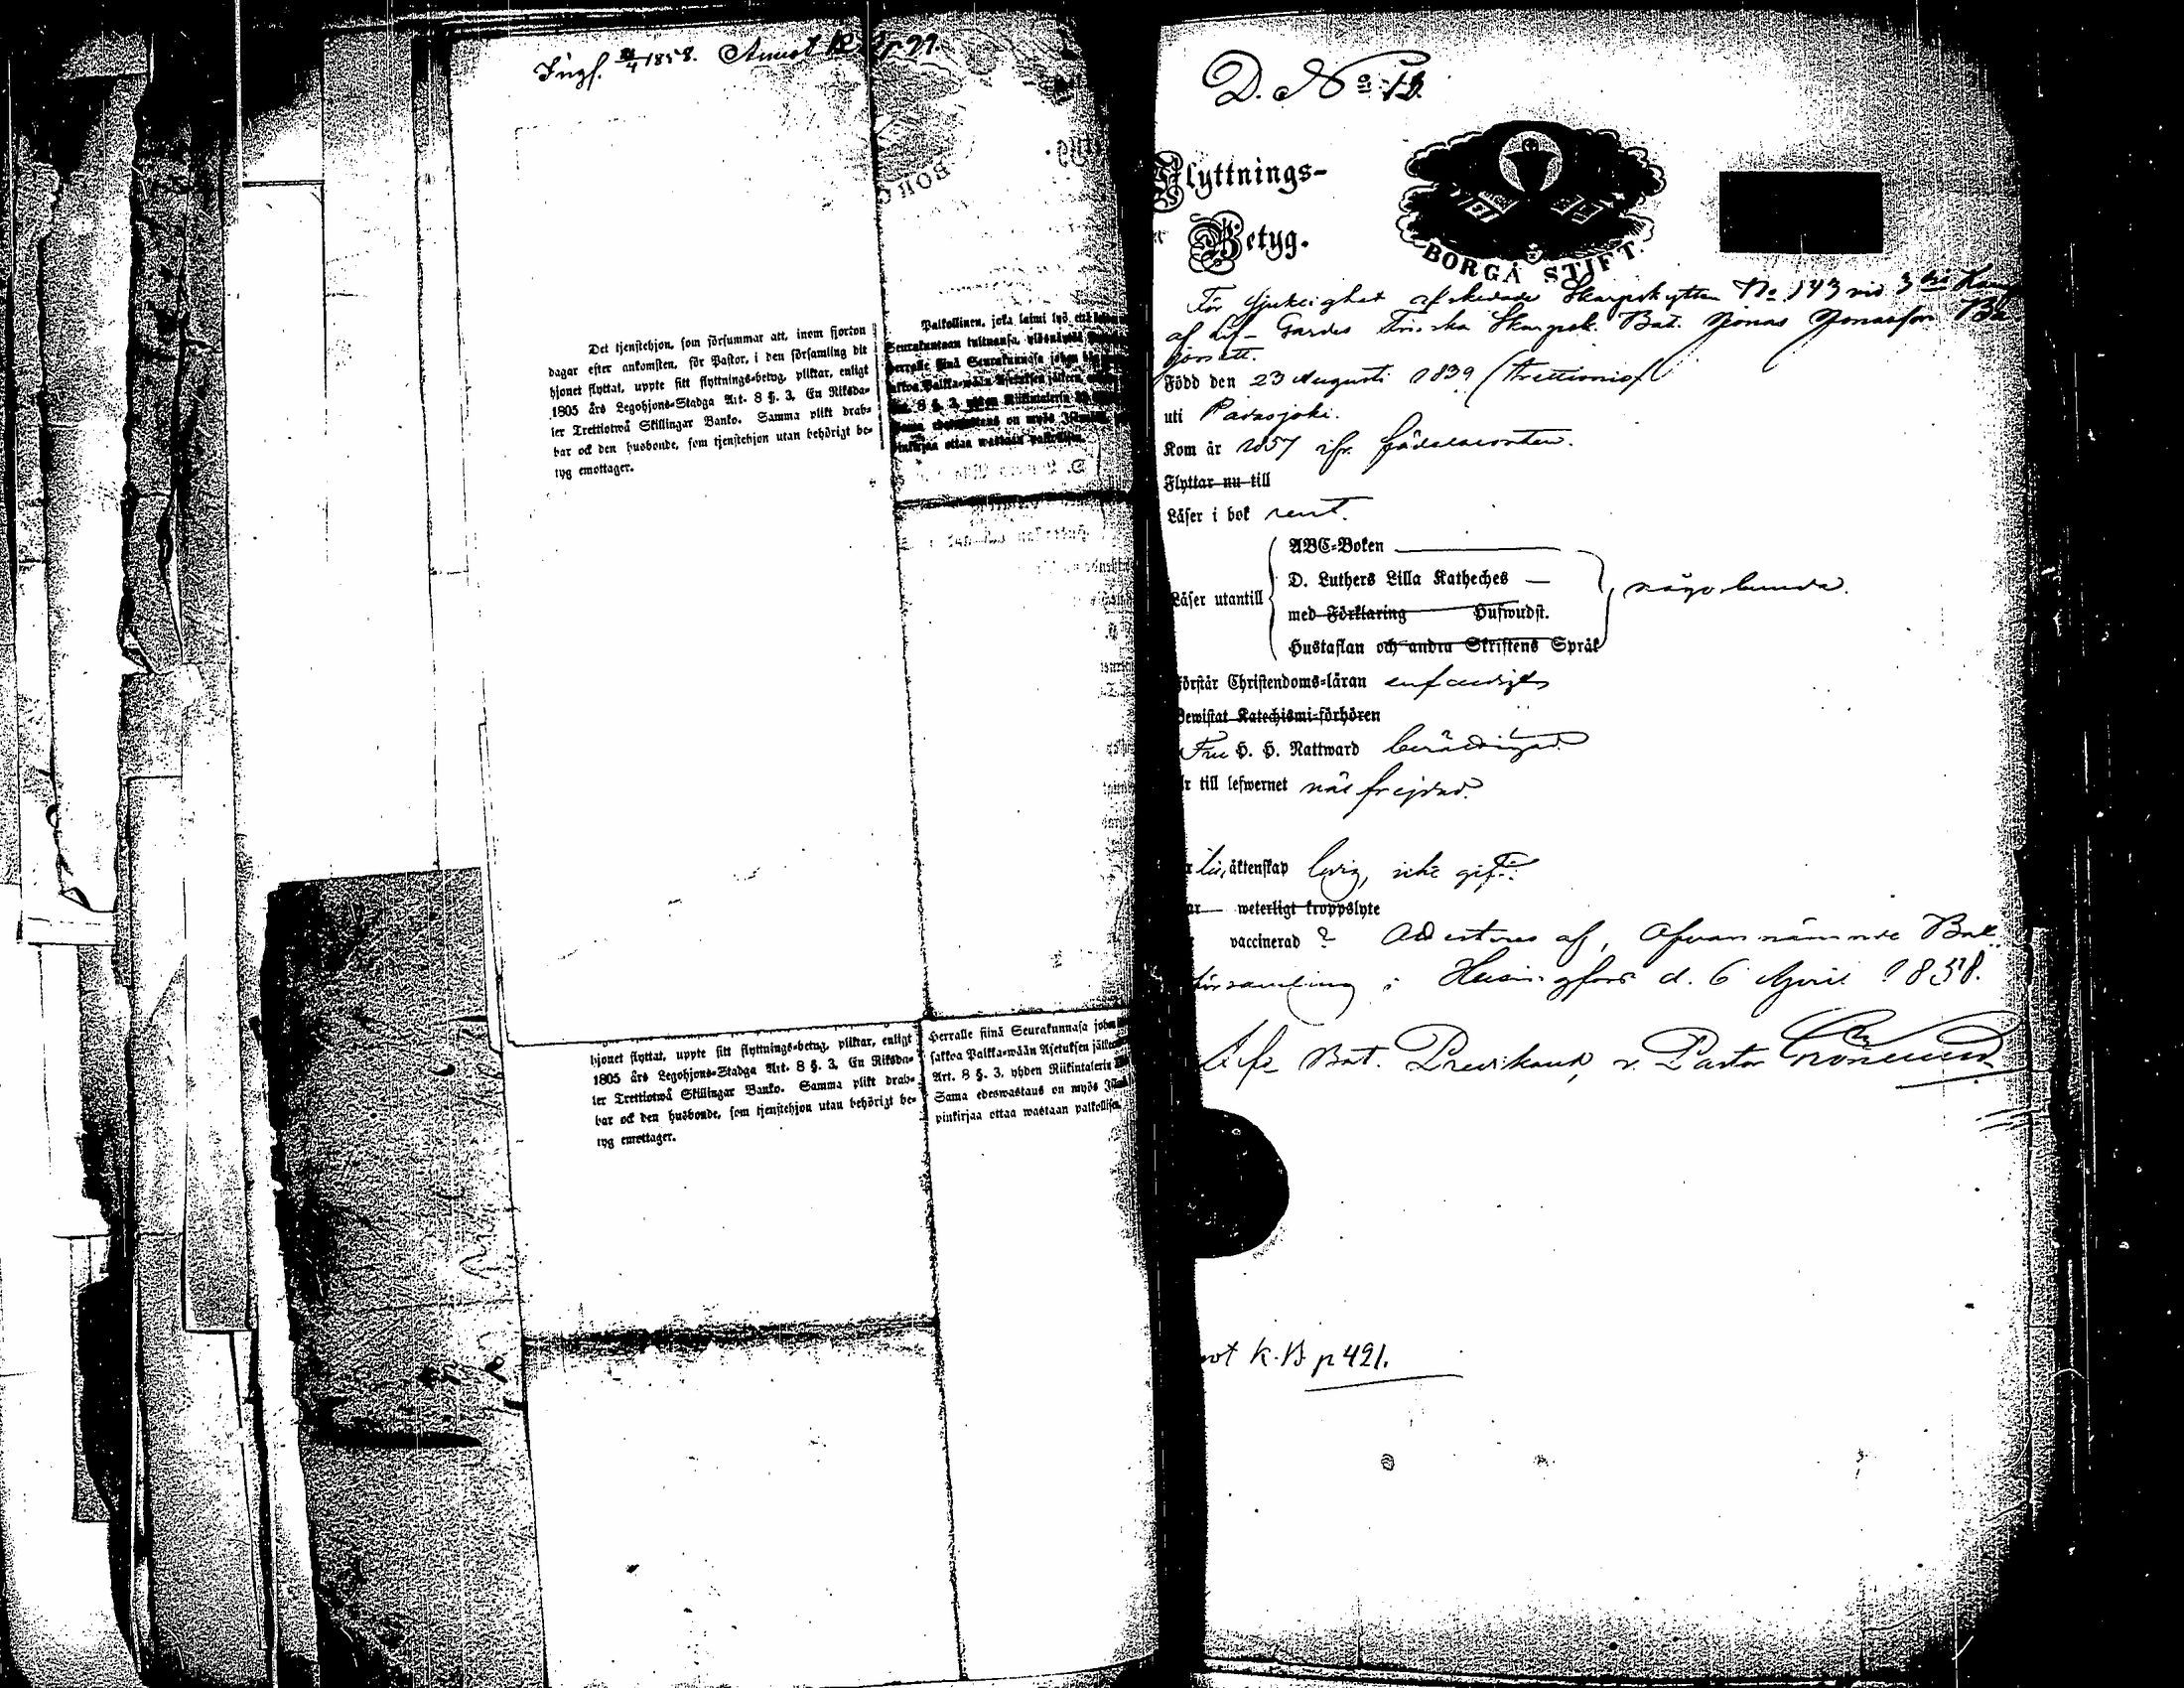 Ingf. 1858. Annot K. p 27.
Det tjenstehjon, som försummar att, inom fjorton
dagar efter ankomsten, för Pastor, i den församling dit
hjonet flyttat, uppte sitt flyttnings-betyg, pliktar, enligt
1805 års Legohjons-Stadga Art. 8 §. 3, En Riksda-
ler Trettiotwå Skillingar Banko. Samma plikt drab-
bar ock den husbonde, som tjenstehjon utan behörigt be-
tyg emottager.
Palkollinen, joka laimi lyö
Seurakuntaan tultuansa,
Herralle siinä Seurakunnasa johon
Palkka-wään Asetuksen jälkeen,
Art. 8 §. 3. yhden Riikintalerin
Sama edeswastaus on myös
pinkirjaa ottaa wastaan palkollisen.
hjonet flyttat, uppte sitt flyttnings-betyg, pliktar, enligt
1805 års Legohjons-Stadga Art. 8 §. 3. En Riksda-
ler Trettiotwå Skillingar Banko. Samma plikt drab-
bar ock den husbonde, som tjenstehjon utan behörigt be-
tyg emottager.
Herralle siinä Seurakunnasa johon
sakkoa Palkka-wään Asetuksen jälkeen
Art. 8 §. 3. yhden Riikintalerin
Sama edeswastaus on myös
pinkirjaa ottaa wastaan palkollisen.
D. No 13.
Flyttnings-
Betyg.
BORGÅ STIFT.
För sjuklighet afskedade Skarpskytten No 143 vid 3dje Komp
af Lif-Gardes Finska Skarpsk. Bat. Jonas Jonasson
Född den 23 Augusti 1839 (trettionio)
uti Padasjoki.
Kom år 1857 ifr. födelseorten.
Flyttar nu till
Läser i bok rent.
ABC-Boken
D. Luthers Lilla Katheches
med Förklaring Hufwudst.
Läser utantill
Hustaflan och andra Skriftens Språk
någorlunda.
Förstår Christendoms-läran enfaldigt
Bewistat Katechismi-förhören
H. H. Nattward berättigad
till lefwernet välfrejdad.
till äktenskap ledig, icke gift.
weterligt kroppslyte
vaccinerad ? Attesteras af, Ofvannämnde Bat.
församling i Helsingfors d. 6 April 1858.
Bat. Predikant, v. Pastor
K.B. p 421.